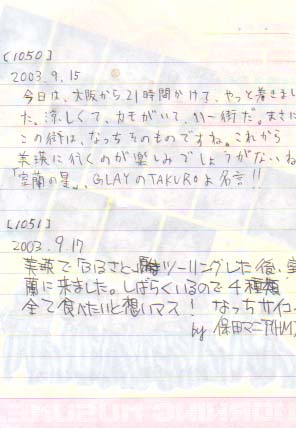 [1050]
2003.9.15
今日は、大阪から21時間かけて、やっと着きまし
た。涼しくて、カモがいて、いい街だ。まさに
この街は、なっちそのものですね。これから
美瑛に行くのが楽しみでしょうがないね
「室蘭の星」、GLAYのTAKUROよ名言!!
[1051]
2003.9.17
美瑛で「ふるさと」ツーリングした後、室
蘭に来ました。しばらくいるので4種類
全て食べたいと想いマス! なっちサイコー
by 保田マニア(HM)